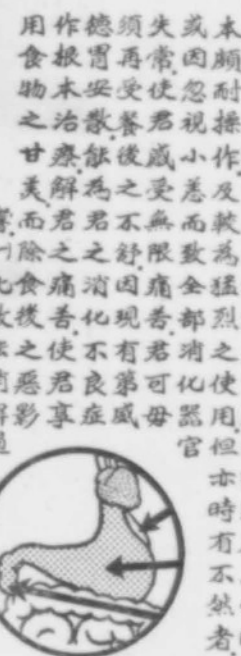 本頗耐操作及較為猛烈之使用.但亦時有不然者.
或因忽視小恙而致全部消化器官
失常.使君感受無限痛苦.君可毋
須再受餐後之不舒.因現有第威
德胃安散.能為君之消化不良症
作根本治療.解君之痛苦.使君享
用食物之甘美.而除食後之惡影